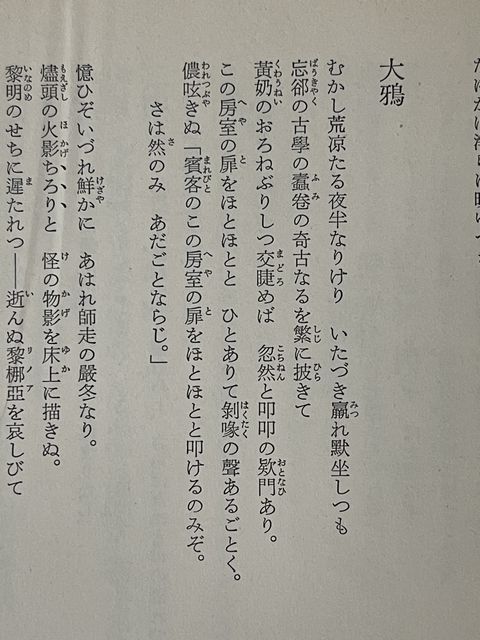 大鴉
むかし荒凉たる夜半なりけり　いたづき羸れ默坐しつも
忘郤の古學の蠹卷の奇古なるを繁に披きて
黃奶のおろねぶりしつ交睫めば　忽然と叩叩の欵門あり。
この房室の扉をほとほとと　ひとありて剝啄の聲あるごとく。
儂呟きぬ「賓客のこの房室の扉をほとほとと叩けるのみぞ。
さは然のみ　あだごとならじ。」
憶ひぞいづれ鮮かに　あはれ師走の嚴冬なり。
燼頭の火影ちろりと　怪の物影を床上に描きぬ。
黎明のせちに遲たれつ——逝んぬ黎梛亞を哀しびて